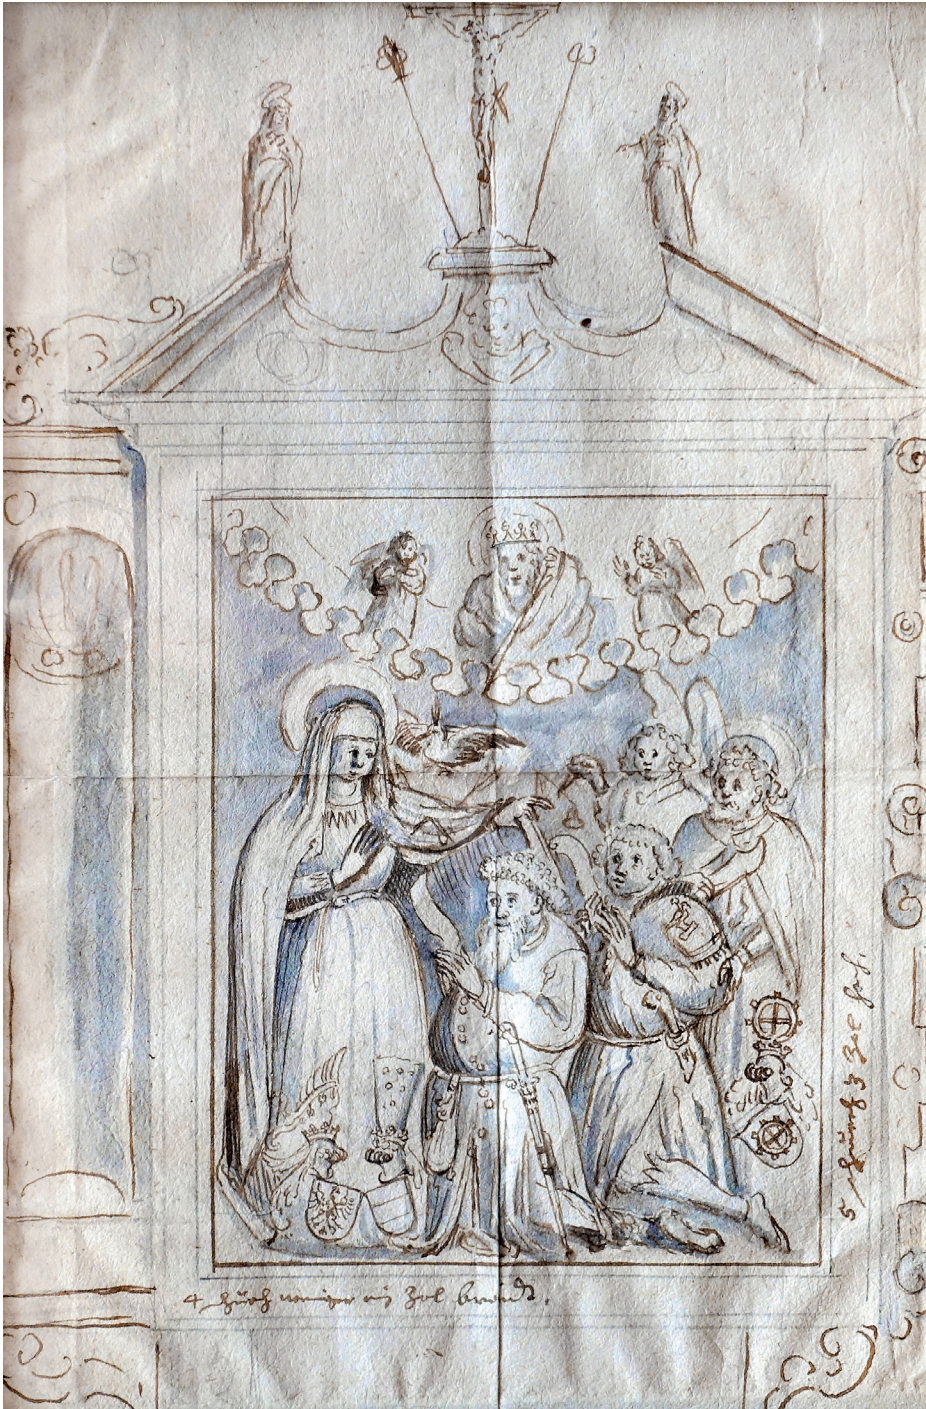 4 schuch weniger ein Zol braidt.
5 schuch 3 Zoe hoch.